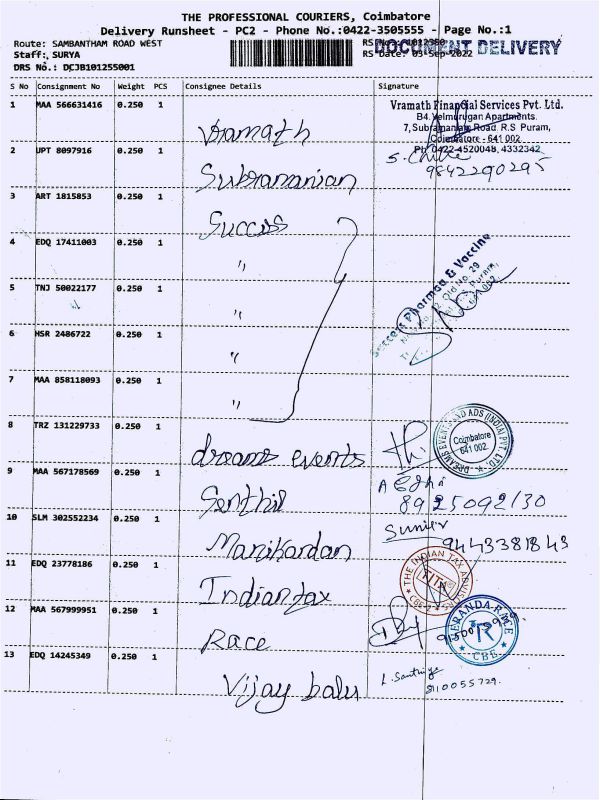 THE PROFESSIONAL COURIERS, Coimbatore
Delivery Runsheet - PC2 - Phone No.:0422-3505555 - Page No.:1
Route: SAMBANTHAM ROAD WEST
DOCUMENT DELIVERY
Staff: SURYA
RS Date: 03-Sep-2022
DRS No.: DCJB101255001
S No Consignment No Weight PCS Consignee Details Signature
1 MAA 566631416 0.250 1 Vramath
Vramath Financial Services Pvt. Ltd.
B4. Velmurugan Apartments.
7, Subramaniam Road. R.S Puram,
Coimbatore - 641 002
Ph: 0422-4520048, 4332342
2 UPT 8097916 0.250 1 Subramanian
9842290295
3 ART 1815853 0.250 1 Success
4 EDQ 17411003 0.250 1 "
Success Pharma & Vaccine
5 TNJ 50022177 0.250 1 "
6 HSR 2486722 0.250 1 "
7 MAA 858118093 0.250 1 "
8 TRZ 131229733 0.250 1 dreams events
DREAMS EVENTS AND ADS (INDIA) PVT. LTD.
Coimbatore
641 002.
9 MAA 567178569 0.250 1 Senthil
8925092130
10 SLM 302552234 0.250 1 Manikandan
9443381843
11 EDQ 23778186 0.250 1 Indian tax
THE INDIAN TAX
12 MAA 567999951 0.250 1 Race
VERANDA-RACE
CBE
13 EDQ 14245349 0.250 1 Vijay balu
L. Santhiya
8110055729.